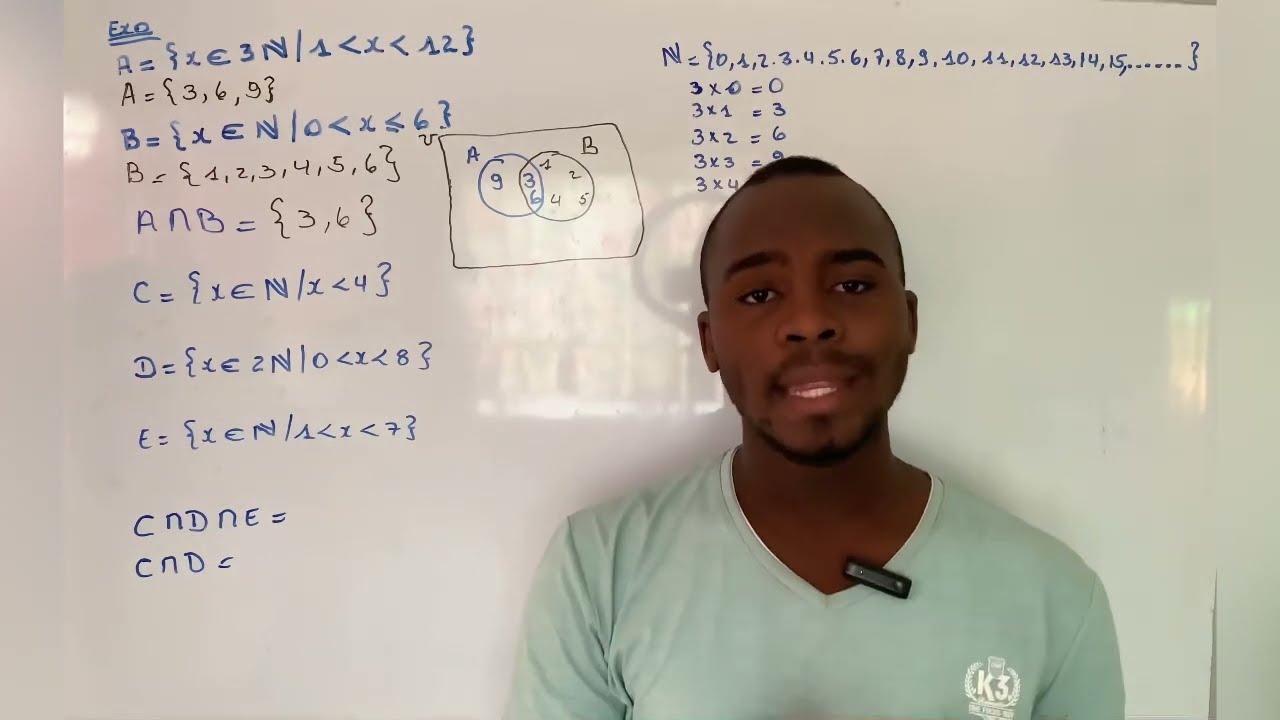 Exo
A = {x ∈ 3ℕ / 1 < x < 12}
A = {3, 6, 9}
B = {x ∈ ℕ / 0 < x ≤ 6}
B = {1, 2, 3, 4, 5, 6}
A ∩ B = {3, 6}
C = {x ∈ ℕ / x < 4}
D = {x ∈ 2ℕ / 0 < x < 8}
E = {x ∈ ℕ / 1 < x < 7}
C ∩ D ∩ E =
C ∩ D =
A B
9 3 1 2
6 4 5
ℕ = {0, 1, 2. 3. 4. 5. 6, 7, 8, 9, 10, 11, 12, 13, 14, 15, ......}
3 × 0 = 0
3 × 1 = 3
3 × 2 = 6
3 × 3 = 9
3 × 4
K3